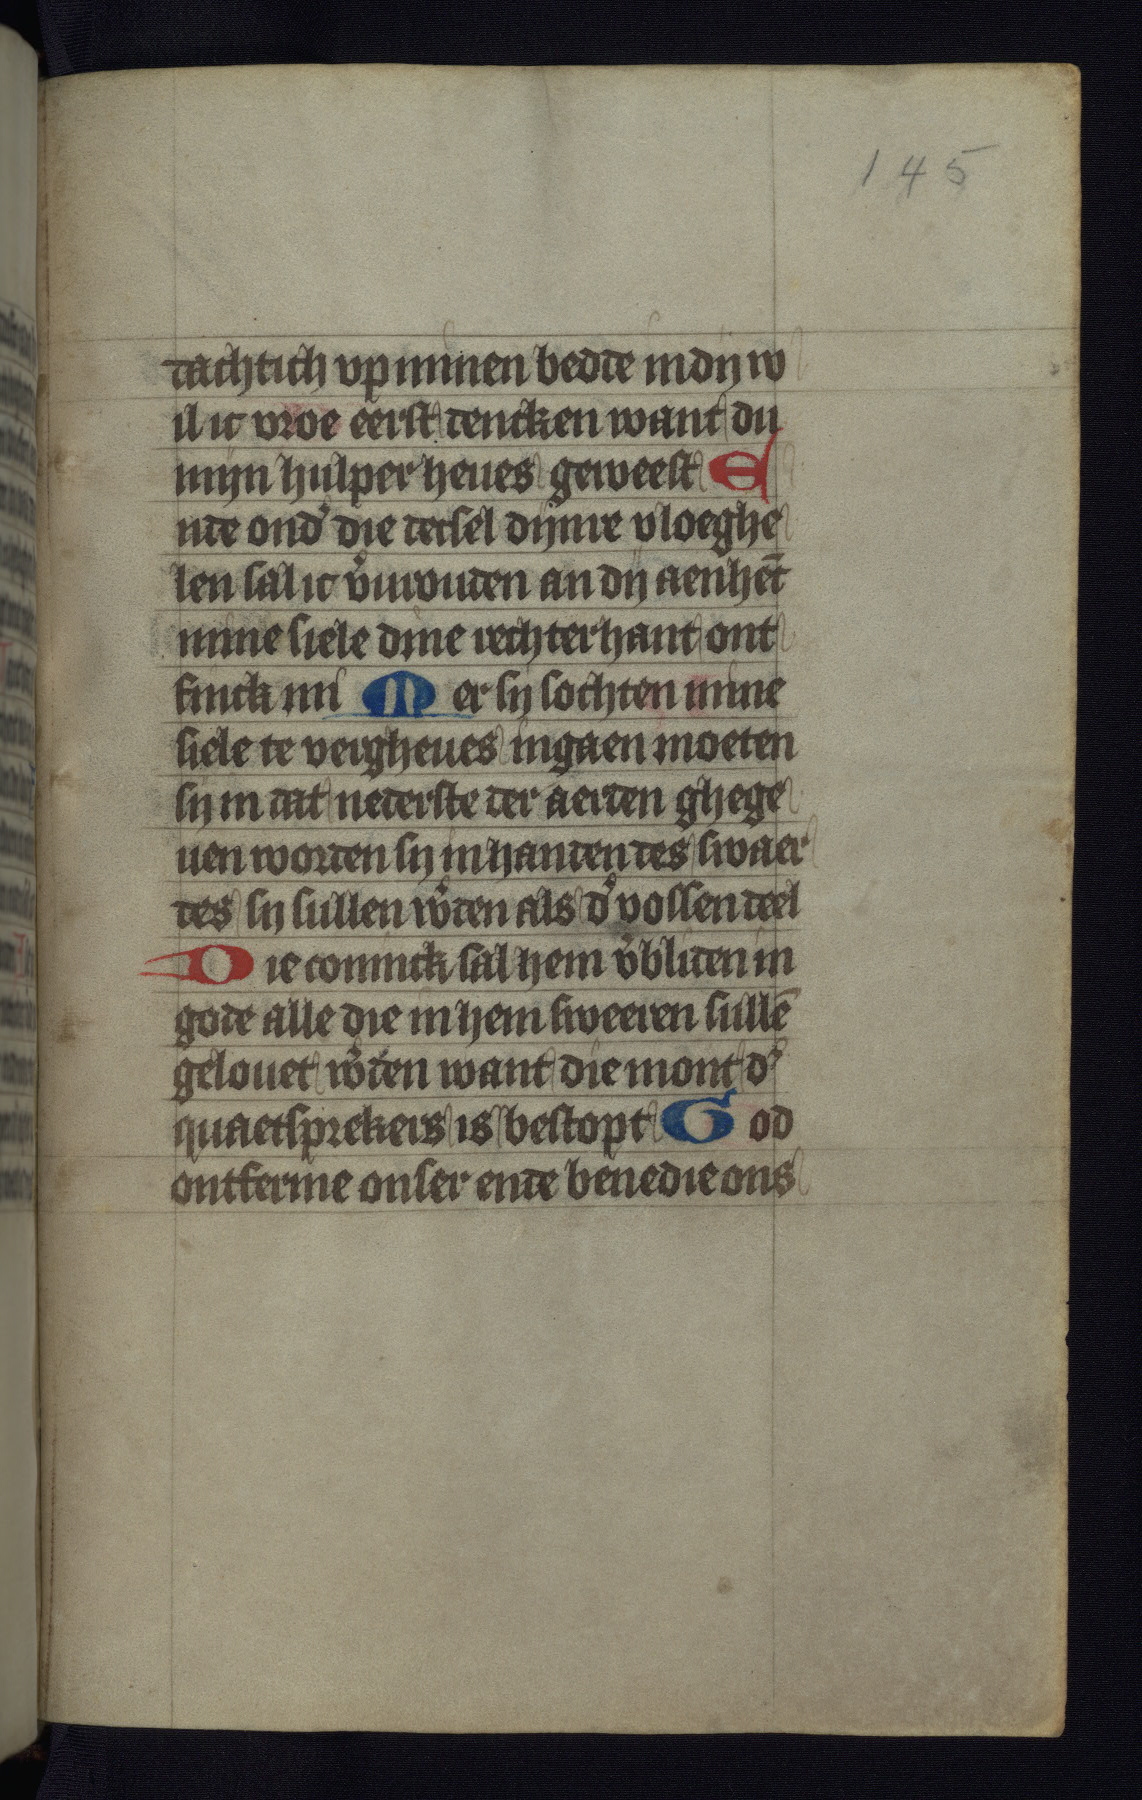 145
dachtich vp minen bedde in dij w
il ic vroe eerst dencken want du
mijn hulper heues geweest E
nde ond' die decsel dijnre vloeghe
len sal ic v'urouden an dij aenhēt
mine siele dine rechterhant ont
finck mi Mer sij sochten mine
siele te vergheues ingaen moeten
sij in dat nederste der aerden ghege
uen worden sij in handen des swaer
des sij sullen w'den als d' vossen deel
Die coninck sal hem v'bliden in
gode alle die in hem sweeren sullē
gelouet w'den want die mont d'
quaetsprekers is bestopt God
ontferme onser ende benedie ons